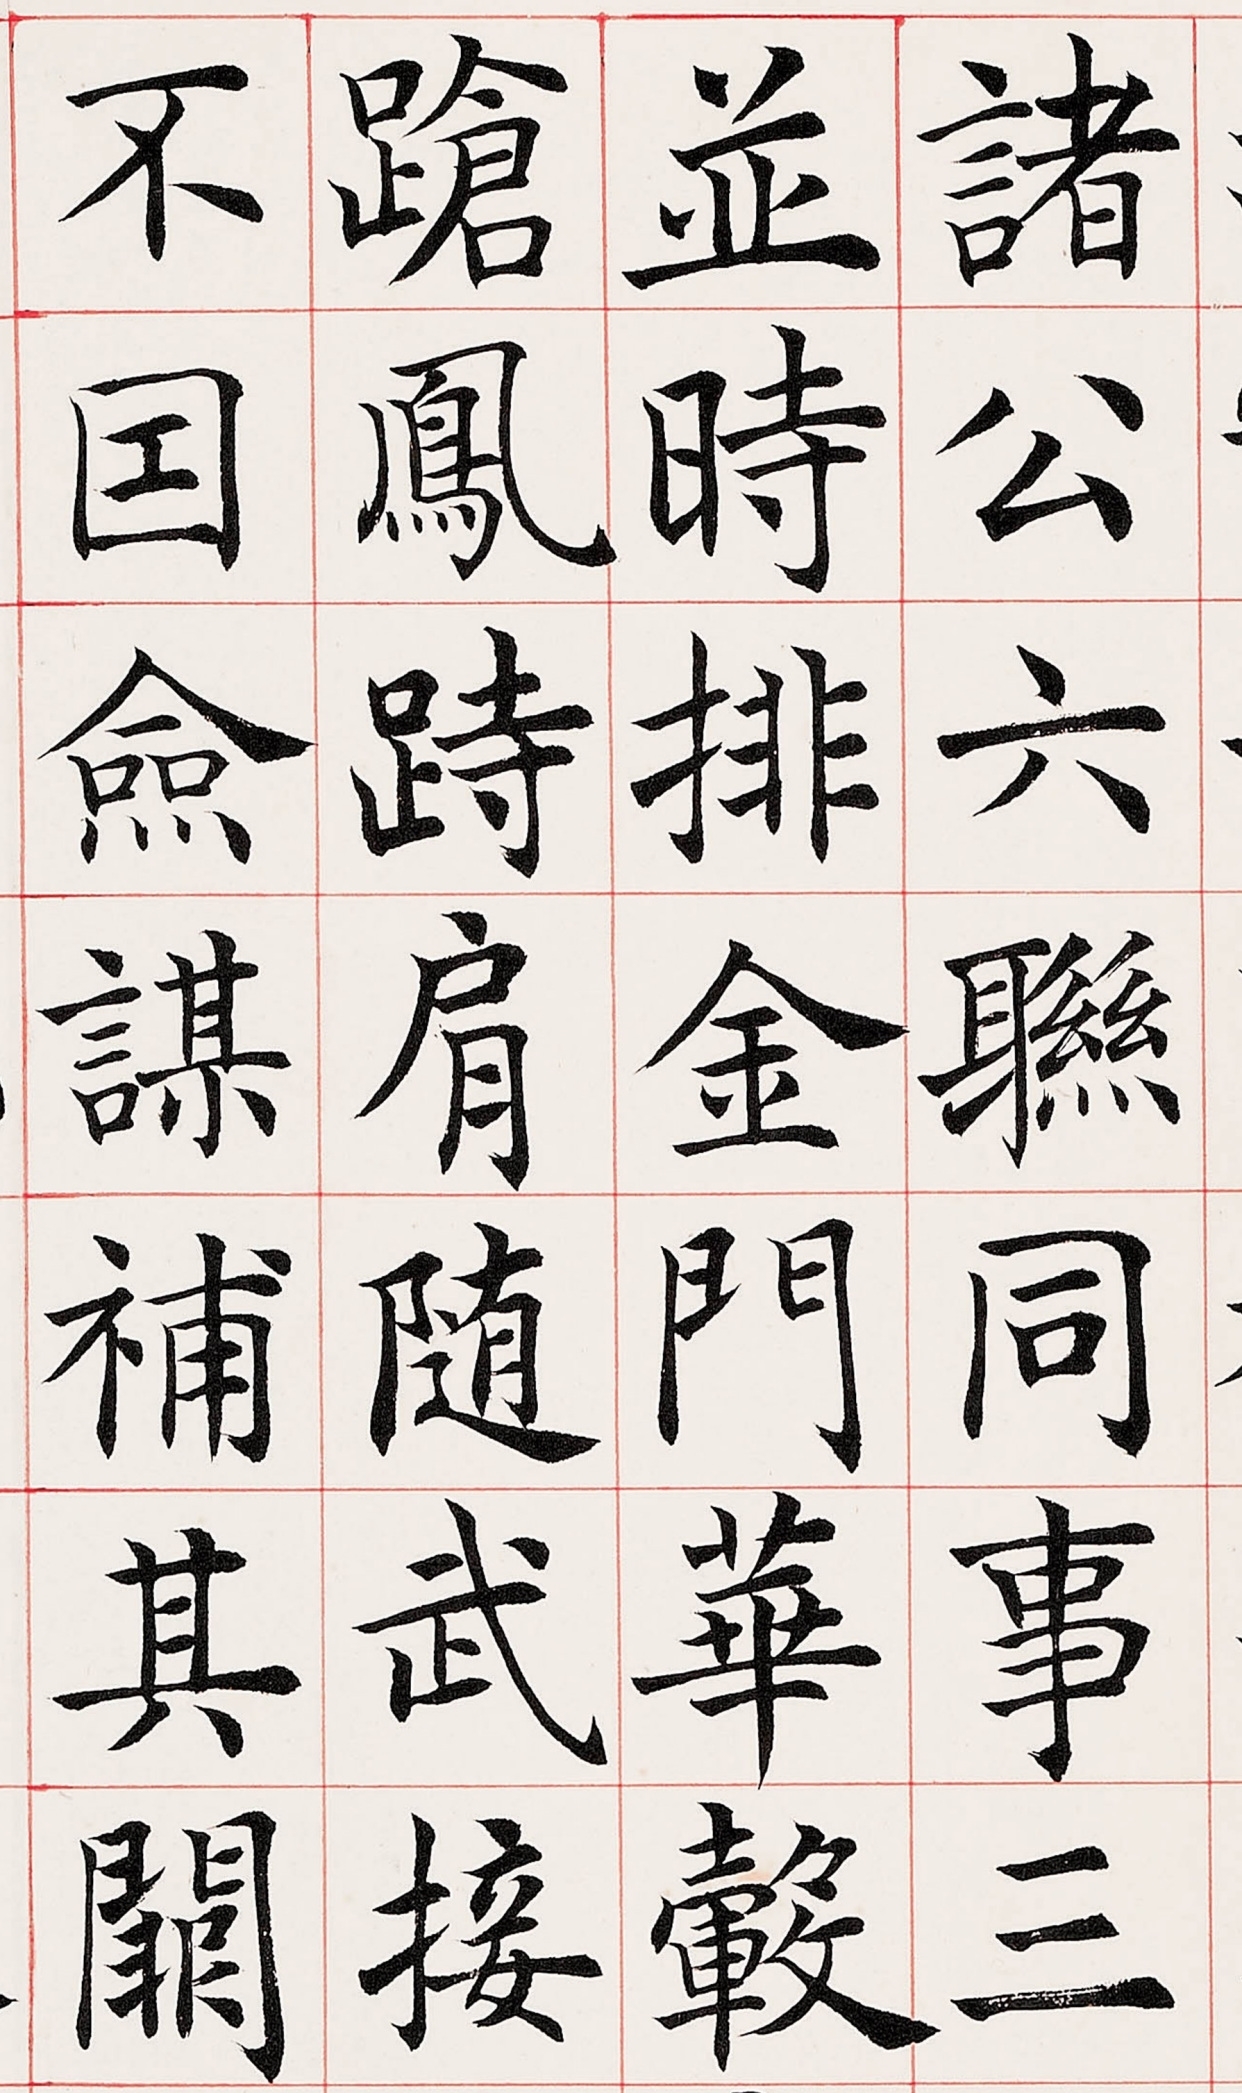 諸公六聯同事三
並時排金門華轂
蹌鳳跱肩随武接
不囯僉謀補其闕